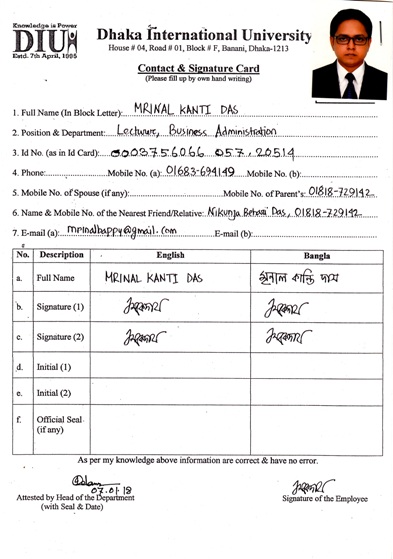 Knowledge is Power
DIU
Estd. 7th April, 1995
Dhaka International University
House # 04, Road # 01, Block # F, Banani, Dhaka-1213
Contact & Signature Card
(Please fill up by own hand writing)
1. Full Name (In Block Letter): MRINAL KANTI DAS
2. Position & Department: Lecturer, Business Administration
3. Id No. (as in Id Card): 0003756066 057, 20514
4. Phone: Mobile No. (a): 01683-694149 Mobile No. (b):
5. Mobile No. of Spouse (if any): Mobile No. of Parent's: 01818-729142
6. Name & Mobile No. of the Nearest Friend/Relative: Nikunja Behari Das, 01818-729142
7. E-mail (a): mrinalbappy@gmail.com E-mail (b):
No. Description English Bangla
a. Full Name MRINAL KANTI DAS মৃনাল কান্তি দাস
b. Signature (1)
c. Signature (2)
d. Initial (1)
e. Initial (2)
f. Official Seal
(if any)
As per my knowledge above information are correct & have no error.
07.01.18
Attested by Head of the Department Signature of the Employee
(with Seal & Date)